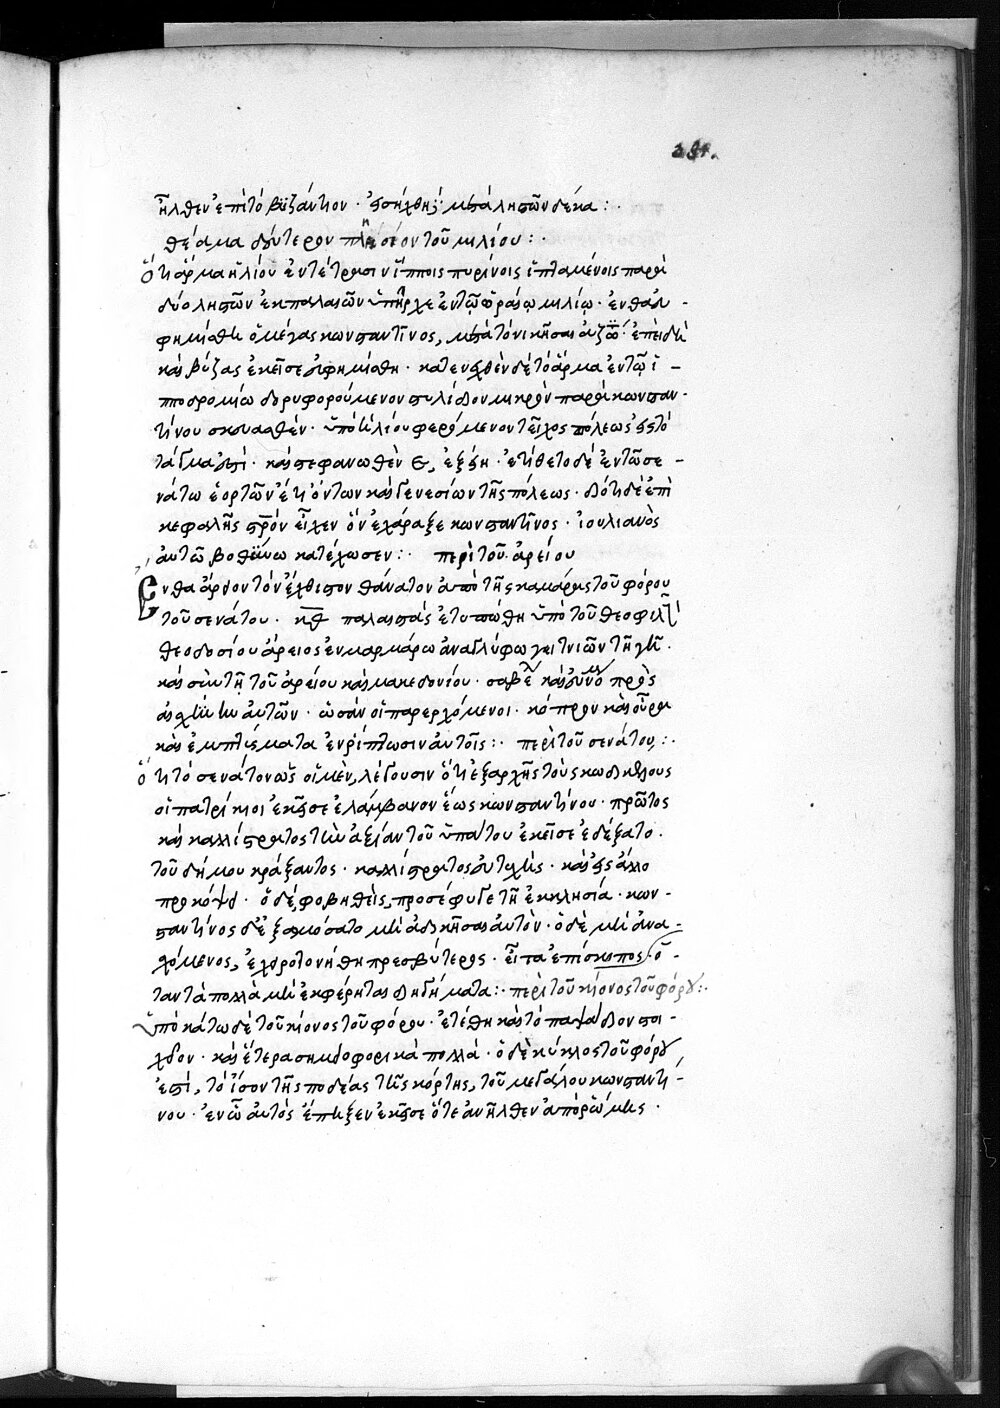 ἦλθεν ἐπὶ τὸ βυζάντιον · ἐστήχθη μετὰ λησῶν δέκα :·
θέαμα δεύτερον πλησίον τοῦ μιλίου :·
ὅτι ἅρμα ἡλίου ἐν τέτρασιν ἵπποις πυρίνοις ἱπταμένοις παρὰ
δύο λησῶν ἐκ παλαιῶν ὑπῆρχε ἐν τῷ φόρῳ μιλίῳ · ἔνθα εὐ-
φημίσθη ὁ μέγας κωνσταντῖνος, μετὰ τὸ νικῆσαι ἀζώτιον · ἐπειδὴ
καὶ βύζας ἐκεῖσε εὐφημίσθη · κατενεχθὲν δὲ τὸ ἅρμα ἐν τῷ ἱ-
πποδρομίῳ δορυφορούμενον στηλίδιον μικρὸν παρὰ κωνσταν-
τίνου σκευασθὲν · ὑπὸ ἡλίου φερόμενον τεῖχος πόλεως
καὶ στεφανωθὲν ἐξῄει · ἐτίθετο δὲ ἐν τῷ σε-
νάτω ἕως τῶν γενεσίων τῆς πόλεως · διότι δὲ ἐπὶ
κεφαλῆς σταυρὸν εἶχεν ὃν ἐχάραξε κωνσταντῖνος · ἰουλιανὸς
αὐτῶ βοθύνω κατέχωσεν :· περὶ τοῦ ἀρείου
Ενθα ἄρειον τὸν αἴσχιστον θάνατον ἀπὸ τῆς καμάρας τοῦ φόρου
τοῦ σενάτου · κθ παλαιστὰς ἐτυπώθη ὑπὸ τοῦ θεοφιλ
θεοδοσίου ἄρειος ἐν μαρμάρω ἀναγλύφω γειτνιῶν τῆ γῆ ·
καὶ σὺν τῆ τοῦ ἀρείου καὶ μακεδονίου · σαβελ καὶ εὐνομ πρὸς
αἰσχύνην αὐτῶν · ὡσὰν οἱ παρερχόμενοι · κόπρον καὶ οὖρα
καὶ ἐμπτύσματα ἐνρίπτωσιν αὐτοῖς :· περὶ τοῦ σενάτου :·
ὅτι τὸ σενάτον ὡς οἱ μὲν, λέγουσιν ὅτι ἐξαρχῆς τοὺς κωδικέλλους
οἱ πατρίκιοι ἐκεῖσε ἐλάμβανον ἕως κωνσταντίνου · πρῶτος
καὶ καλλίστρατος τὴν ἀξίαν τοῦ ὑπάτου ἐκεῖσε ἐδέξατο ·
τοῦ δήμου κράξαντος · καλλίστρατος εὐτυχὴς · καὶ εἰς ἄλλο
προκόψει · ὁ δὲ, φοβηθεὶς, προσέφυγε τῆ ἐκκλησία · κων-
σταντίνος δὲ ἐξωμόσατο μὴ ἀδικῆσαι αὐτὸν · ὁ δὲ μὴ ἀνα-
χόμενος, ἐχειροτονήθη πρεσβύτερος · εἶτα ἐπίσκοπος · ὅ-
ταν τὰ πολλὰ μὴ ἐκφέρηται διηγήματα :· περὶ τοῦ κίονος τοῦ φόρου :·
ὑποκάτω δὲ τοῦ κίονος τοῦ φόρου · ἐτέθη καὶ τὸ παλάδιον στοι-
χεῖον · καὶ ἕτερα σημειοφορικὰ πολλά · ὁ δὲ κύκλος τοῦ φόρου
ἐστὶ, τὸ ἴσον τῆς ποδέας τῆς κόρτης, τοῦ μεγάλου κωνσταντί-
νου · ἐν ᾧ αὐτὸς ἔπηξεν ἐκεῖσε ὅτε ἀνῆλθεν ἀπὸ ῥώμης ·